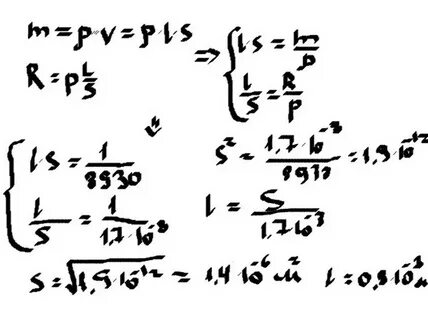 m = ρ v = ρ l s
R = ρ l/s
⇒ { l s = m/ρ
l/s = R/ρ
⇓
{ l s = 1/8930
l/s = 1/1,7·10^-8
s² = 1,7·10^-8/8930 = 1,9·10^-12
l = s/1,7·10^-8
s = √1,9·10^-12 = 1,4·10^-6 м² l = 0,8·10^-3 м